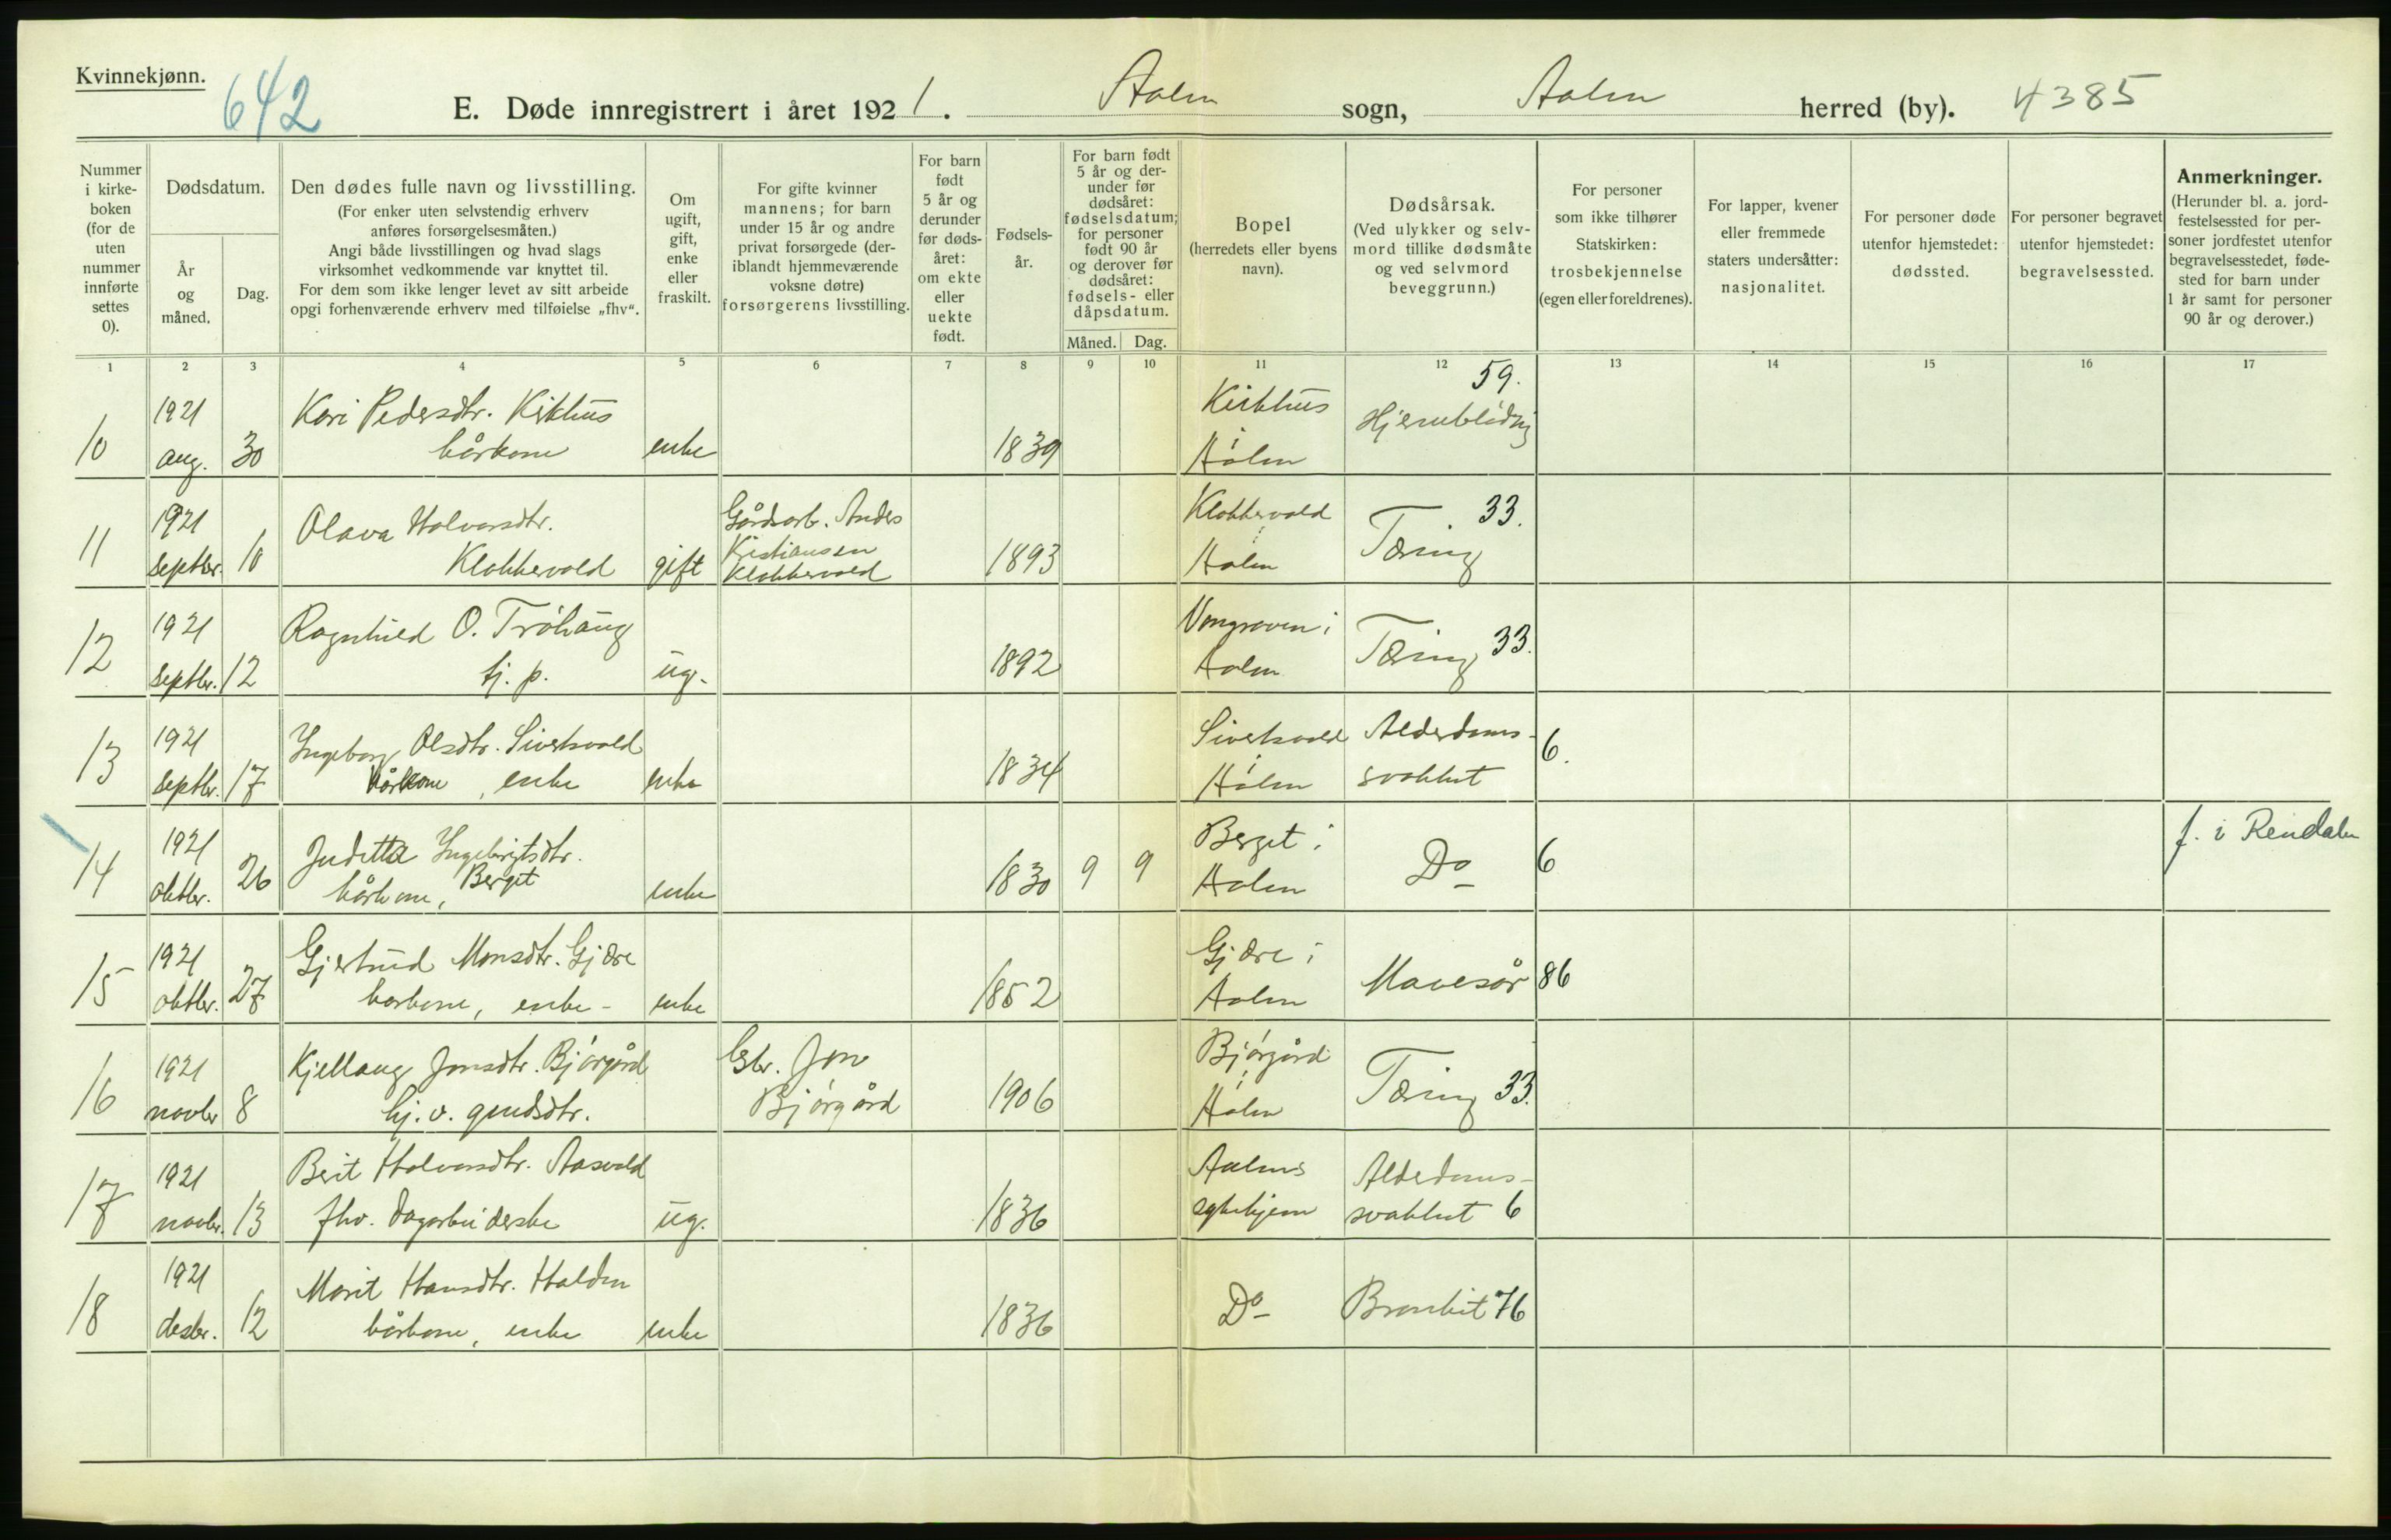 Kvinnekjønn.
642
E. Døde innregistrert i året 1921. Aalen sogn, Aalen herred (by). 4385
Nummer i kirkeboken (for de uten nummer innførte settes 0).
Dødsdatum.
År og måned.
Dag.
Den dødes fulle navn og livsstilling.
(For enker uten selvstendig erhverv anføres forsørgelsesmåten.)
Angi både livsstillingen og hvad slags virksomhet vedkommende var knyttet til.
For dem som ikke lenger levet av sitt arbeide opgi forhenværende erhverv med tilføielse „fhv“.
Om ugift, gift, enke eller fraskilt.
For gifte kvinner mannens; for barn under 15 år og andre privat forsørgede (deriblandt hjemmeværende voksne døtre) forsørgerens livsstilling.
For barn født 5 år og derunder før dødsåret: om ekte eller uekte født.
Fødselsår.
For barn født 5 år og derunder før dødsåret: fødselsdatum; for personer født 90 år og derover før dødsåret: fødsels- eller dåpsdatum.
Måned. Dag.
Bopel
(herredets eller byens navn).
Dødsårsak.
(Ved ulykker og selvmord tillike dødsmåte og ved selvmord beveggrunn.)
For personer som ikke tilhører Statskirken: trosbekjennelse (egen eller foreldrenes).
For lapper, kvener eller fremmede staters undersåtter: nasjonalitet.
For personer døde utenfor hjemstedet: dødssted.
For personer begravet utenfor hjemstedet: begravelsessted.
Anmerkninger.
(Herunder bl. a. jordfestelsessted for personer jordfestet utenfor begravelsesstedet, fødested for barn under 1 år samt for personer 90 år og derover.)
1 2 3 4 5 6 7 8 9 10 11 12 13 14 15 16 17
10 1921 aug. 30 Kari Pedersdtr. Kirkhus kårkone enke 1839 Kirkhus i Aalen Hjerneblødng 59.
11 1921 septbr. 10 Olava Halvorsdtr. Klokkervold gift Gårdsarb. Anders Kristiansen Klokkervold 1893 Klokkervold i Aalen Tæring 33.
12 1921 septbr. 12 Ragnhild O. Trøhaug tj. p. ug. 1892 Vongraven i Aalen Tæring 33.
13 1921 septbr. 17 Ingeborg Olsdtr. Sivertsvold kårkone, enke enke 1834 Sivertsvold i Aalen Alderdomssvakhet 6.
14 1921 oktbr. 26 Juditta Ingebrigtsdtr. kårkone, Berget enke 1830 9 9 Berget i Aalen Do 6 f. i Rendalen
15 1921 oktbr. 27 Gjertrud Monsdtr. Gjære kårkone, enke - enke 1852 Gjære i Aalen Mavesår 86
16 1921 novbr 8 Kjellaug Jonsdtr. Bjørgård hj. v. gmdsdtr. Gbr. Jon Bjørgård 1906 Bjørgård i Aalen Tæring 33.
17 1921 novbr. 13 Berit Halvorsdtr. Aasvold fhv. dagarbeiderske ug. 1836 Aalens sykehjem Alderdomssvakhet 6
18 1921 desbr. 12 Marit Hansdtr. Holden kårkone, enke enke 1836 Do Bronkit 76